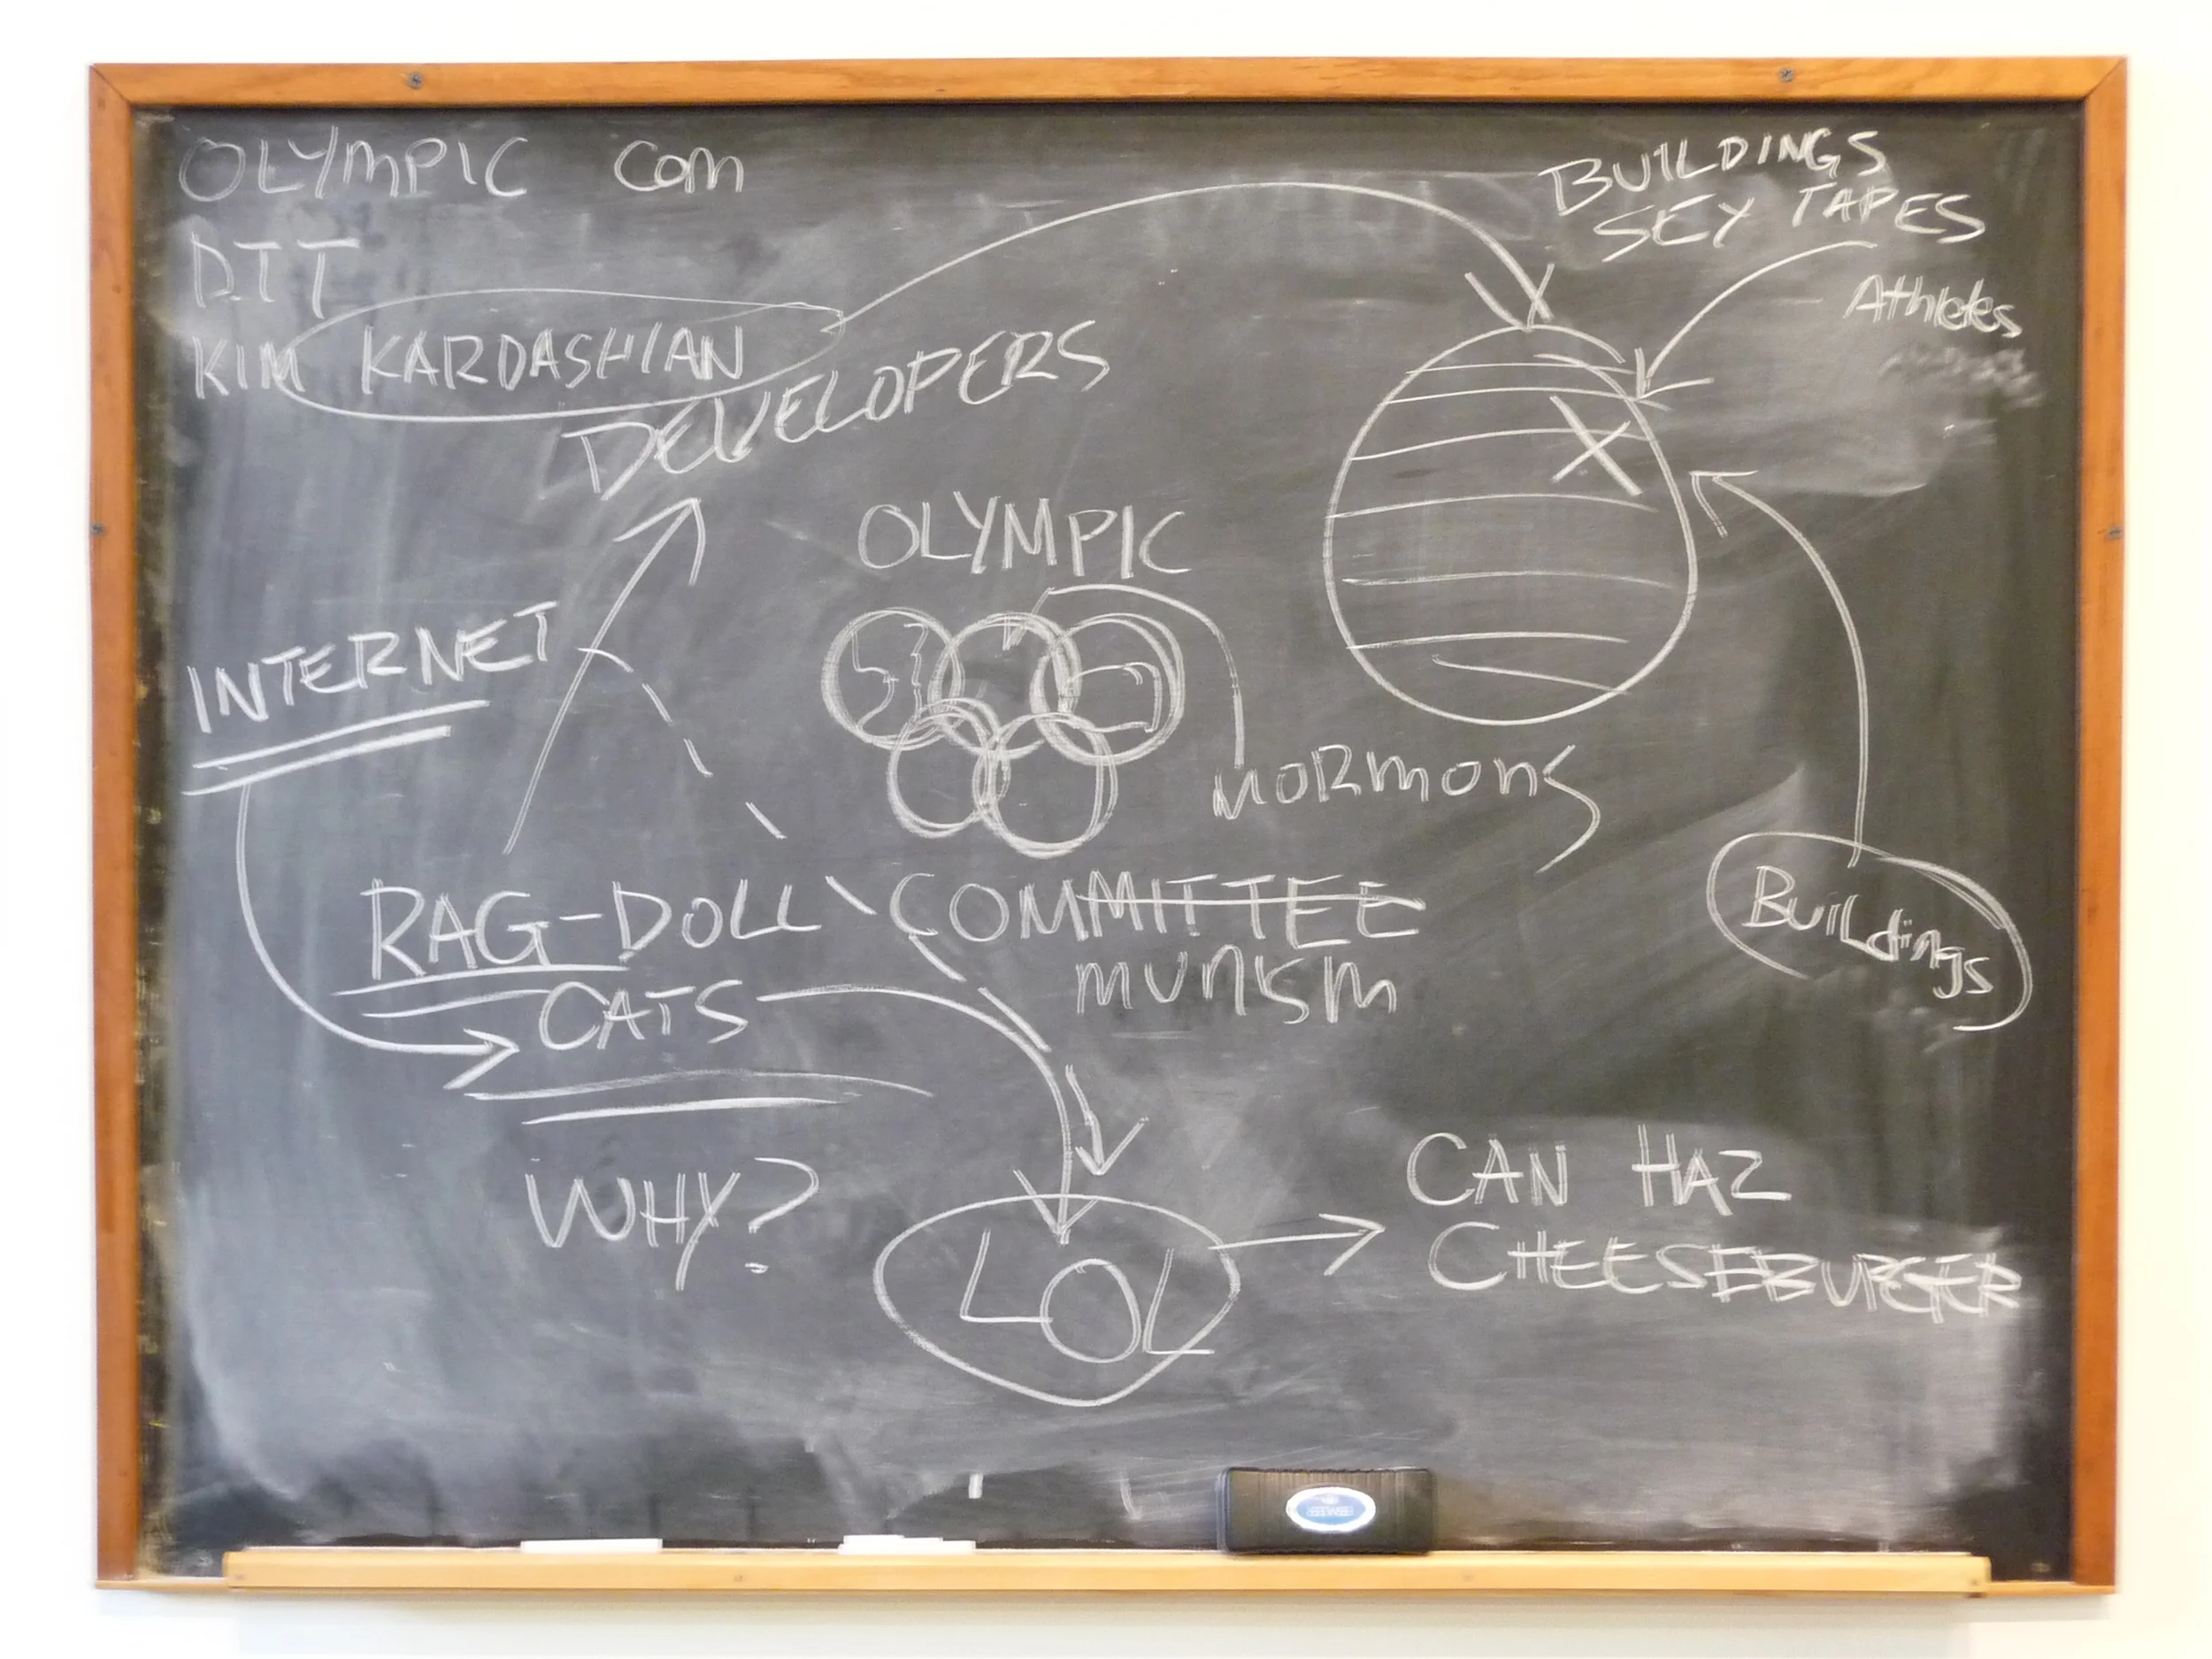 OLYMPIC COM
BUILDINGS
SEX TAPES
D.T T
Athletes
KIM KARDASHIAN
DEVELOPERS
OLYMPIC
INTERNET
MORMONS
RAG-DOLL
CATS
COMMITTEE
MUNISM
Buildings
WHY?
LOL
CAN HAZ
CHEESEBURGER